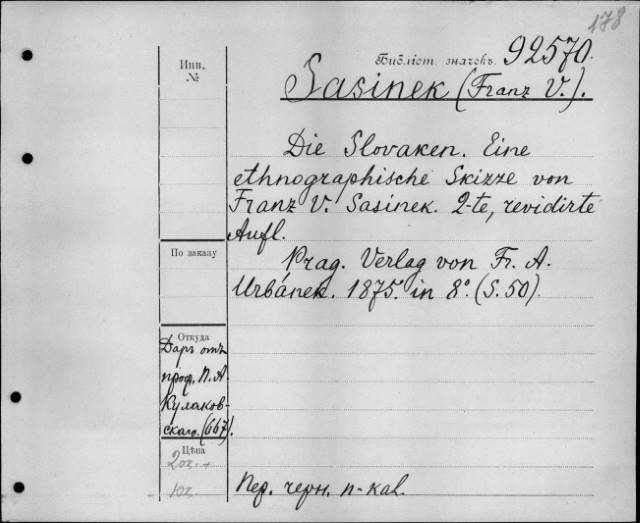 178
Инв. №
Библіот. значекъ 92570.
Sasinek (Franz V.).
Die Slovaken. Eine
ethnographische Skizze von
Franz V. Sasinek. 2-te, revidirte
Aufl.
По заказу
Prag. Verlag von Fr. A.
Urbánek. 1875. in 8° (S. 50).
Откуда
Даръ отъ
проф. П. А.
Кулаков-
скаго. (667).
Цѣна
Пер. черн. п-кал.